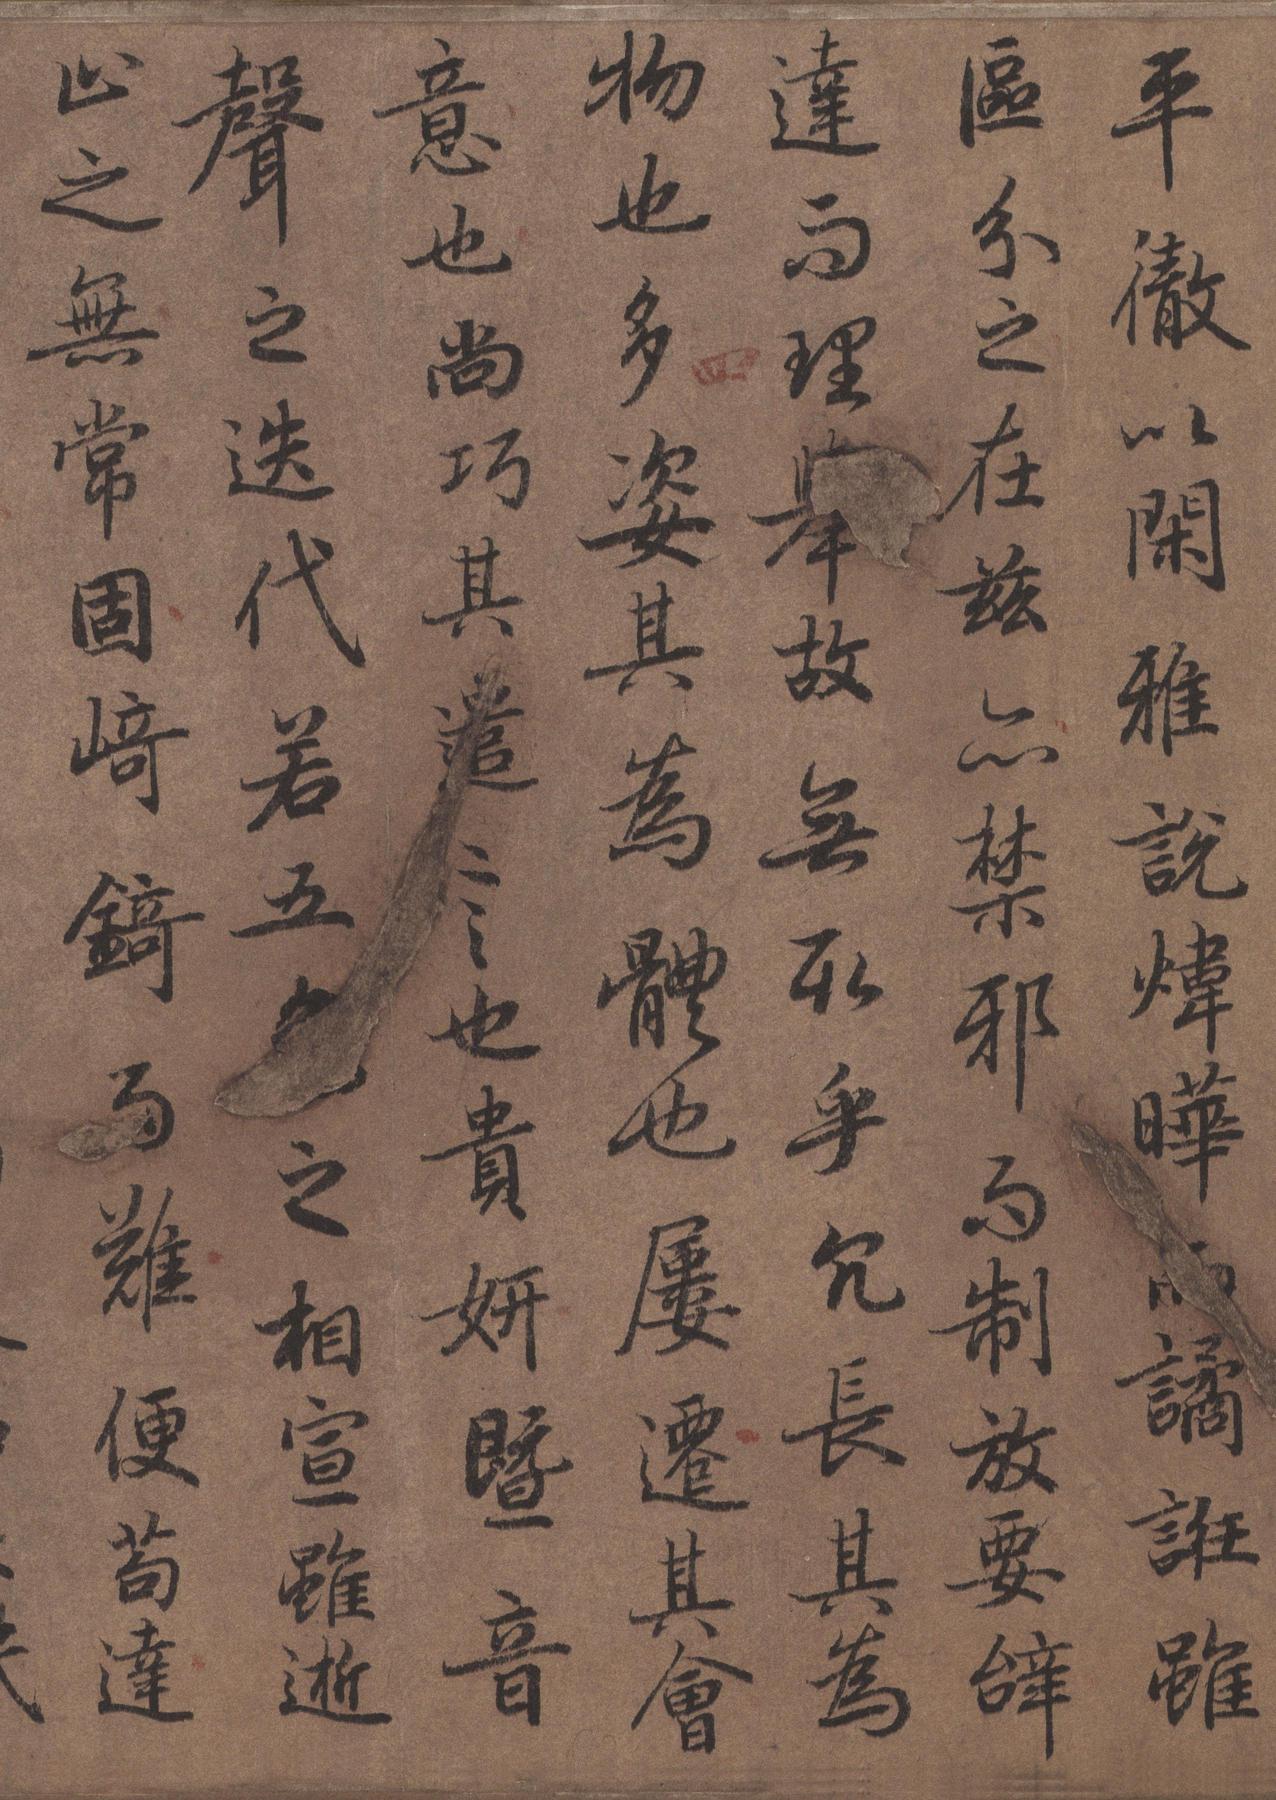 平徹以閑雅說煒曄而譎誑雖
區分之在茲亦禁邪而制放要辝
達而理舉故無取乎冗長其為
物也多姿其為體也屢遷其會
意也尚巧其遣言也貴妍暨音
聲之迭代若五色之相宣雖逝
止之無常固崎錡而難便苟達
四